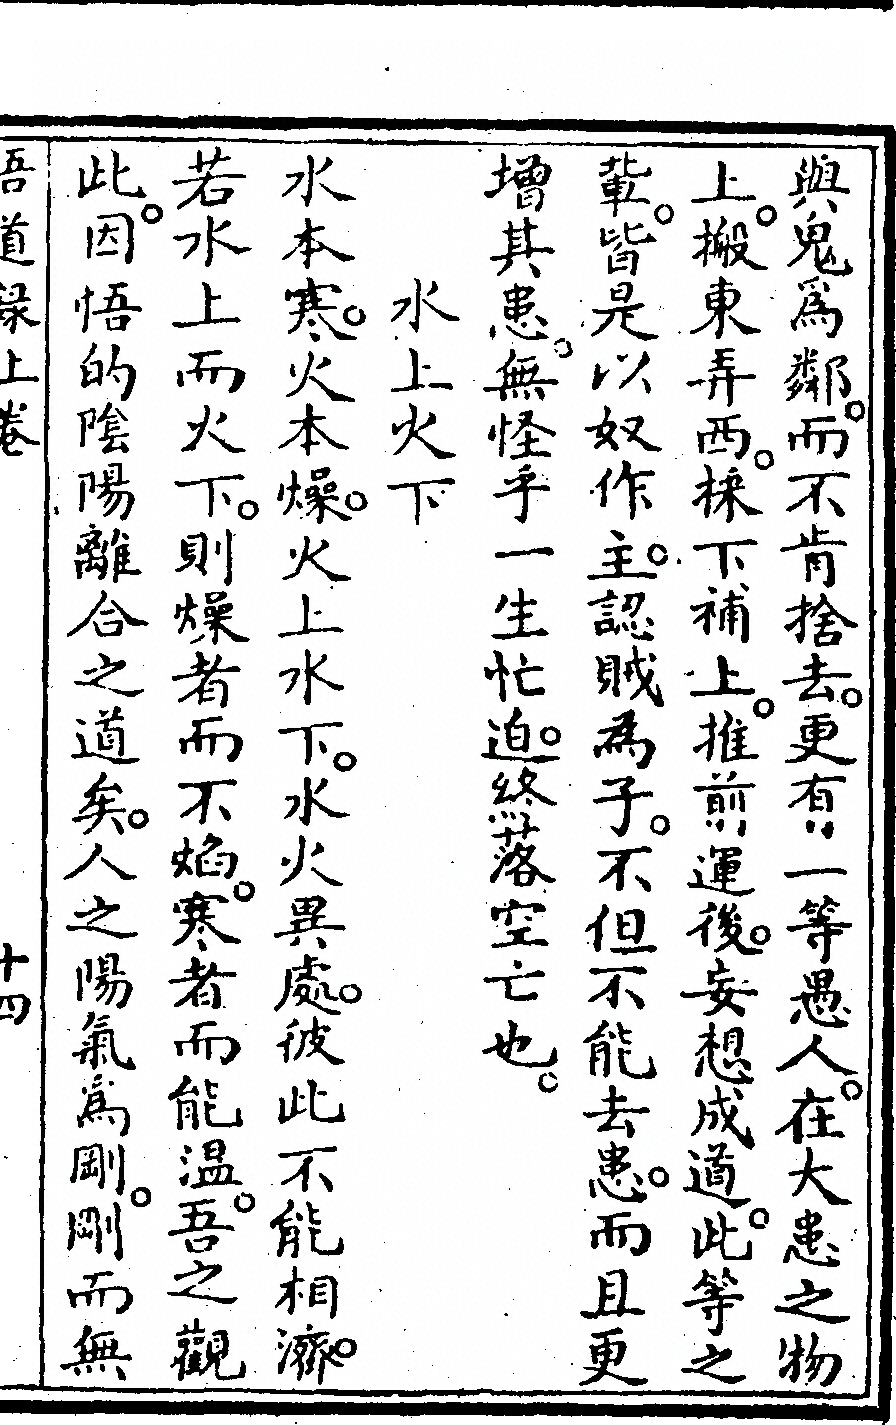 與鬼爲鄰。而不肯捨去。更有一等愚人。在大患之物
上。搬東弄西。採下補上。推前運後。妄想成道。此等之
輩。皆是以奴作主。認賊為子。不但不能去患。而且更
增其患。無怪乎一生忙迫。終落空亡也。
水上火下
水本寒。火本燥。火上水下。水火異處。彼此不能相濟。
若水上而火下。則燥者而不焰。寒者而能溫。吾之觀
此。因悟的陰陽離合之道矣。人之陽氣爲剛。剛而無
悟道錄上卷 十四